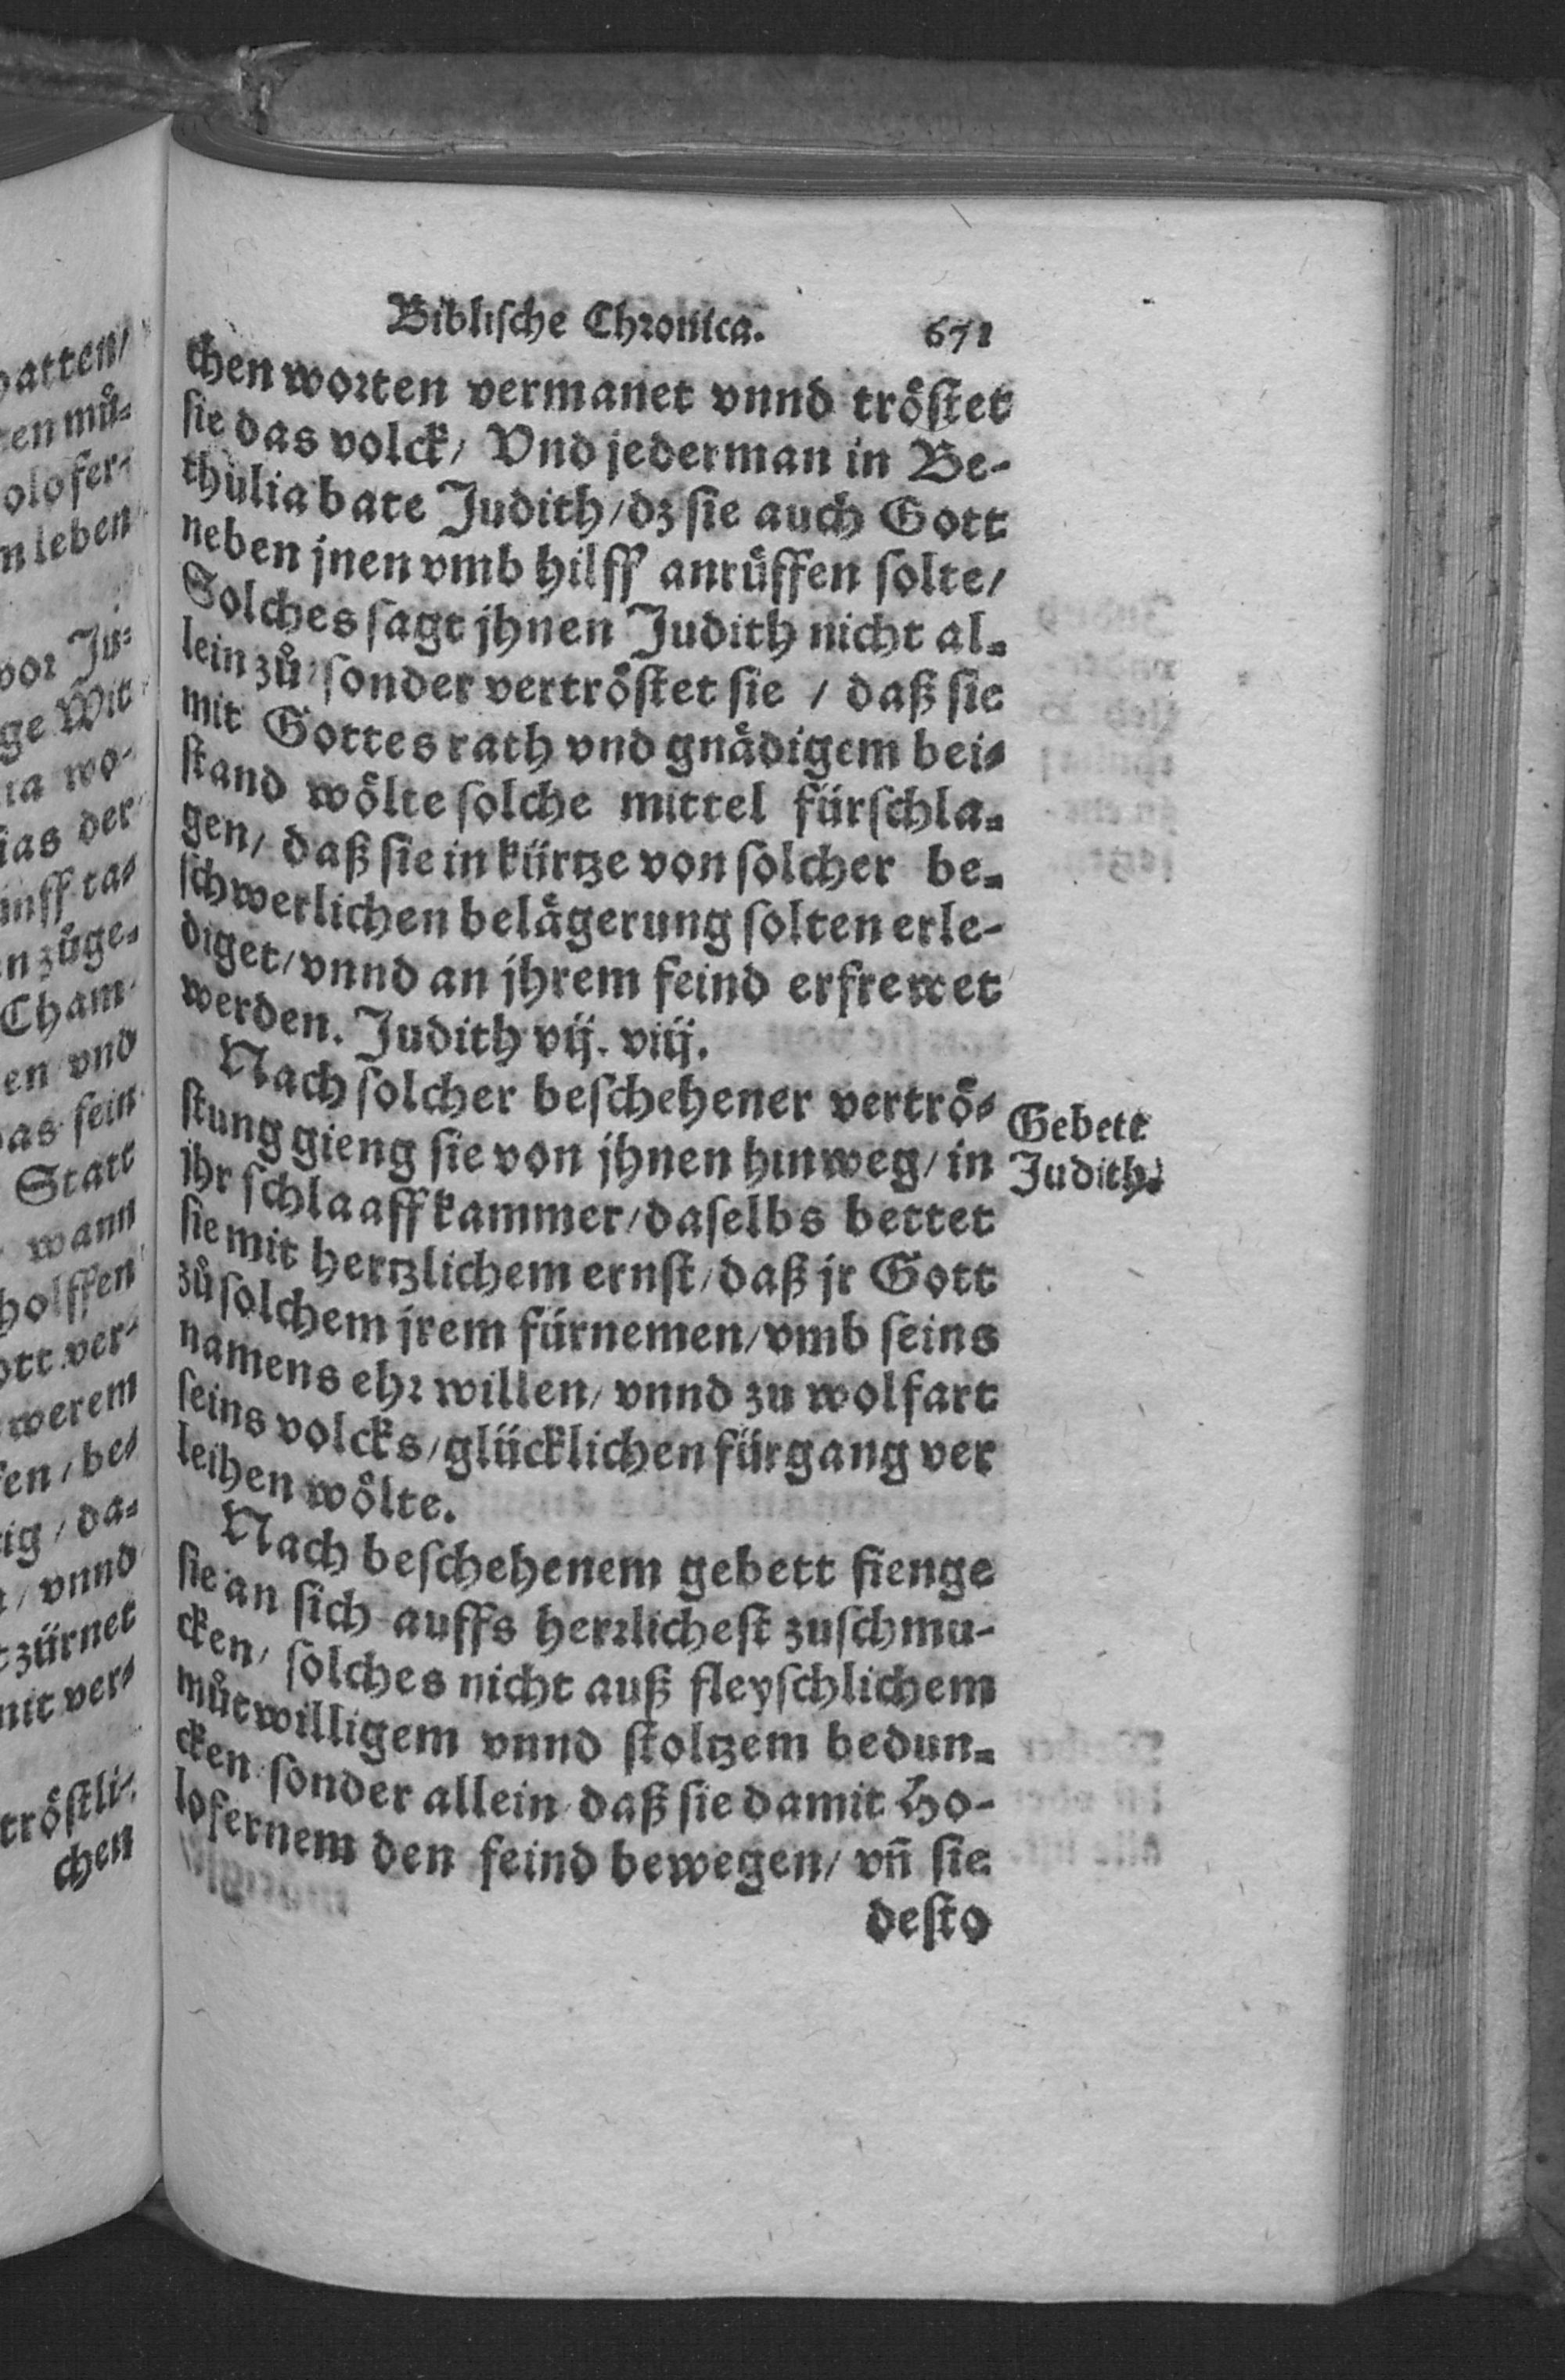 Biblische Chronica. 671
chen worten vermanet vnnd tröstet
sie das volck/ Vnd jederman in Be-
thulia bate Judith/ dz sie auch Gott
neben jnen vmb hilff anrůffen solte/
Solches sagt jhnen Judith nicht al-
lein zů/ sonder vertröstet sie / daß sie
mit Gottes rath vnd gnådigem bei-
stand wölte solche mittel fürschla-
gen/ daß sie in kürtze von solcher be-
schwerlichen belågerung solten erle-
diget/ vnnd an jhrem feind erfrewet
werden. Judith vij. viij.
Nach solcher beschehener vertrö-
stung gieng sie von jhnen hinweg/ in
jhr schlaaffkammer/ daselbs bettet
sie mit hertzlichem ernst/ daß jr Gott
zů solchem jrem fürnemen/ vmb seins
namens ehr willen/ vnnd zu wolfart
seins volcks/ glücklichen fürgang ver
leihen wölte.
Nach beschehenem gebett fienge
sie an sich auffs herrlichest zuschmu-
cken/ solches nicht auß fleyschlichem
můtwilligem vnnd stoltzem bedun-
cken sonder allein daß sie damit Ho-
lofernem den feind bewegen/ vñ sie
desto
Gebett
Judith.
hatten/
můs-
olofer-
leben
vor Ju-
ge Wit
wo-
der
zůge-
Cham-
en vnd
sein
Statt
wann
holffen
ver-
werem
da-
vnnd
zürnet
ver-
tröstli-
chen